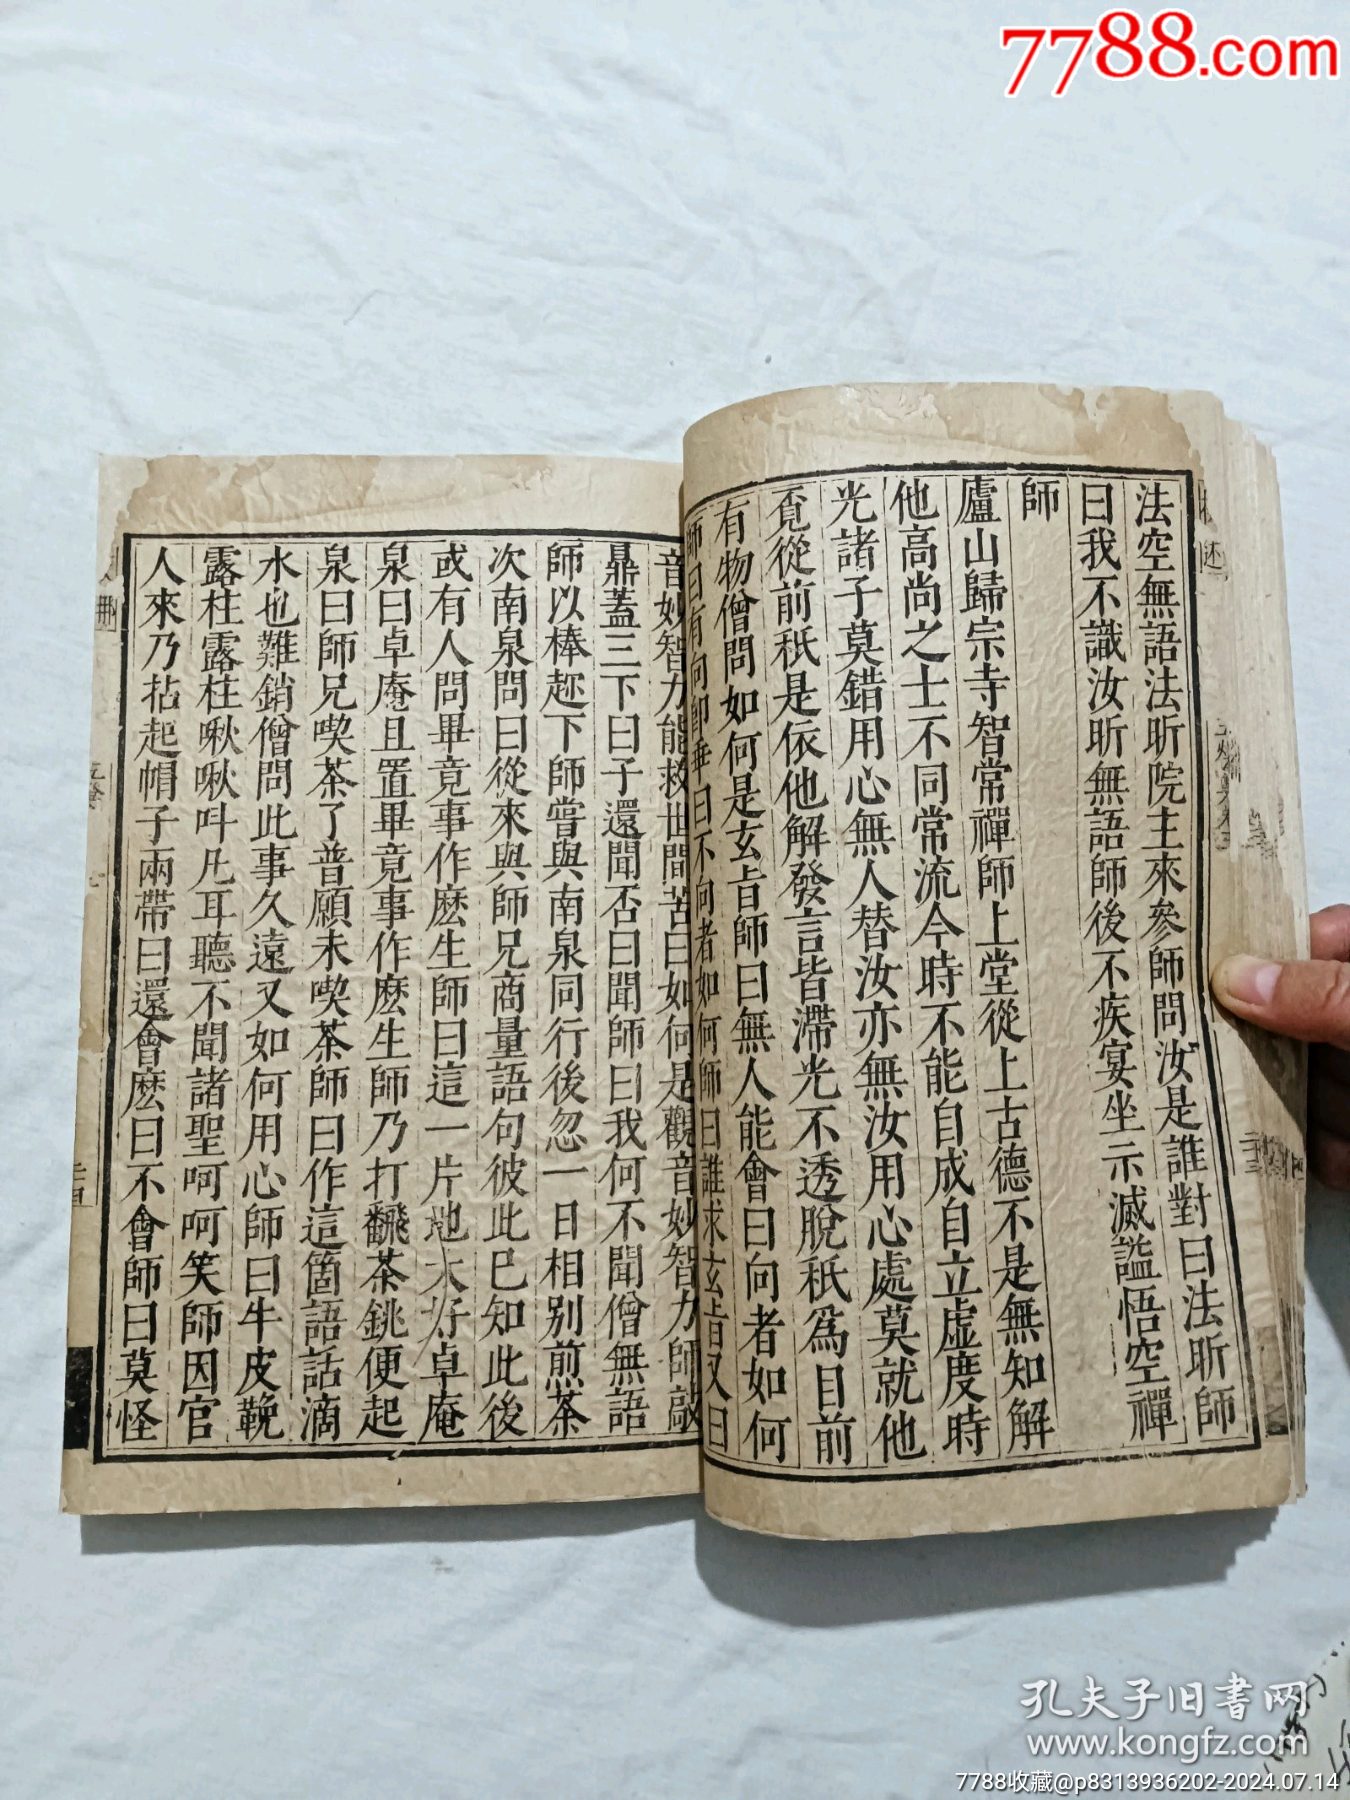 7788.com
法空無語法昕院主來參師問汝是誰對曰法昕師
曰我不識汝昕無語師後不疾宴坐示滅謚悟空禪
師
廬山歸宗寺智常禪師上堂從上古德不是無知解
他高尚之士不同常流今時不能自成自立虛度時
光諸子莫錯用心無人替汝亦無汝用心處莫就他
覔從前秖是依他解發言皆滯光不透脫秖為目前
有物僧問如何是玄旨師曰無人能會曰向者如何
師曰有向即乖曰不向者如何師曰誰求玄旨又曰
音妙智力能救世間苦曰如何是觀音妙智力師敲
鼎蓋三下曰子還聞否曰聞師曰我何不聞僧無語
師以棒趂下師嘗與南泉同行後忽一日相別煎茶
次南泉問曰從來與師兄商量語句彼此已知此後
或有人問畢竟事作麽生師曰這一片地大好卓庵
泉曰卓庵且置畢竟事作麽生師乃打飜茶銚便起
泉曰師兄喫茶了普願未喫茶師曰作這箇語話滴
水也難銷僧問此事久遠又如何用心師曰牛皮鞔
露柱露柱啾啾叫凡耳聽不聞諸聖呵呵笑師因官
人來乃拈起帽子兩帶曰還會麽曰不會師曰莫怪
孔夫子旧書网
www.kongfz.com
7788收藏@p8313936202-2024.07.14